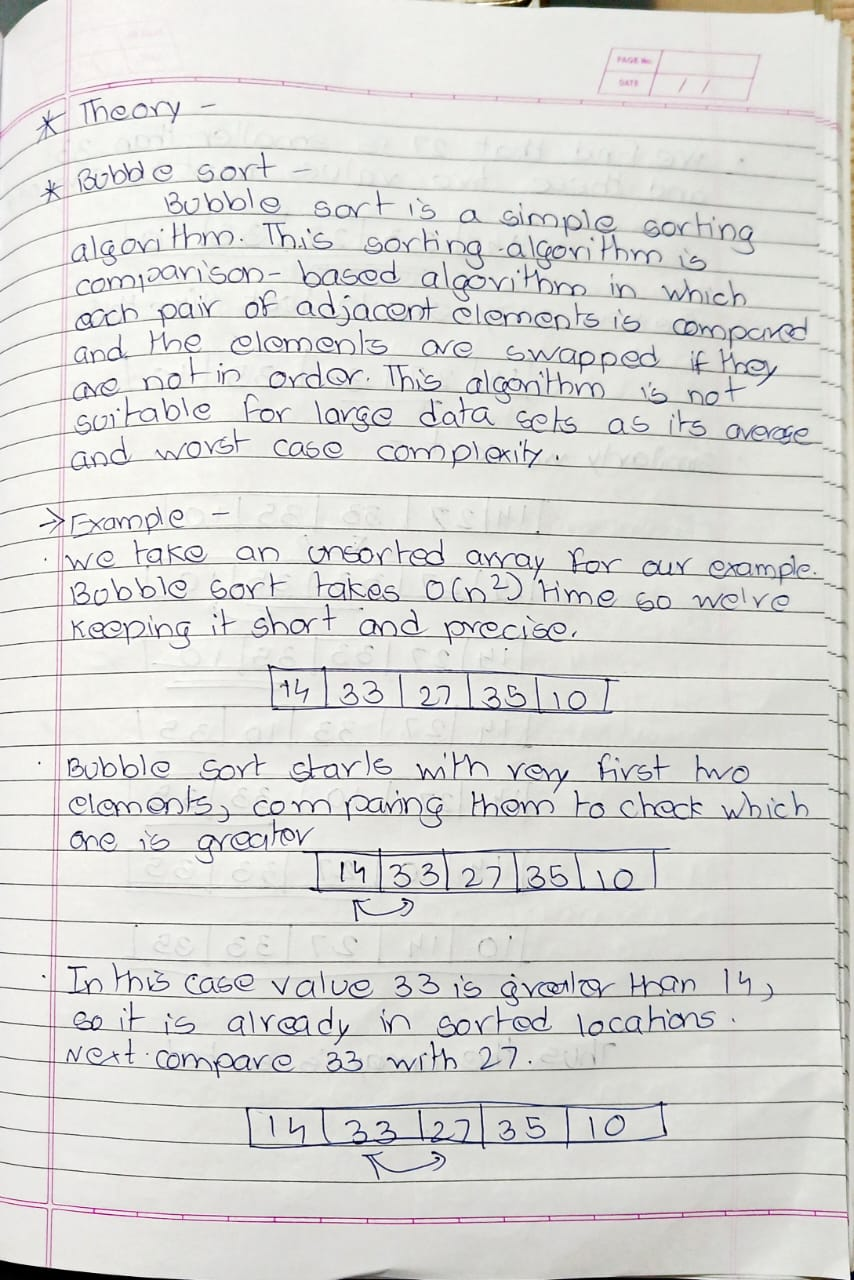 PAGE No.
DATE / /
* Theory -
* Bubble sort -
Bubble sort is a simple sorting
algorithm. This sorting algorithm is
comparison-based algorithm in which
each pair of adjacent elements is compared
and the elements are swapped if they
are not in order. This algorithm is not
suitable for large data sets as its average
and worst case complexity.
→ Example -
· we take an unsorted array for our example.
Bubble sort takes O(n²) time so we're
keeping it short and precise.
14 | 33 | 27 | 35 | 10
· Bubble sort starts with very first two
elements, comparing them to check which
one is greater
14 | 33 | 27 | 35 | 10
· In this case value 33 is greater than 14,
so it is already in sorted locations.
Next compare 33 with 27.
14 | 33 | 27 | 35 | 10